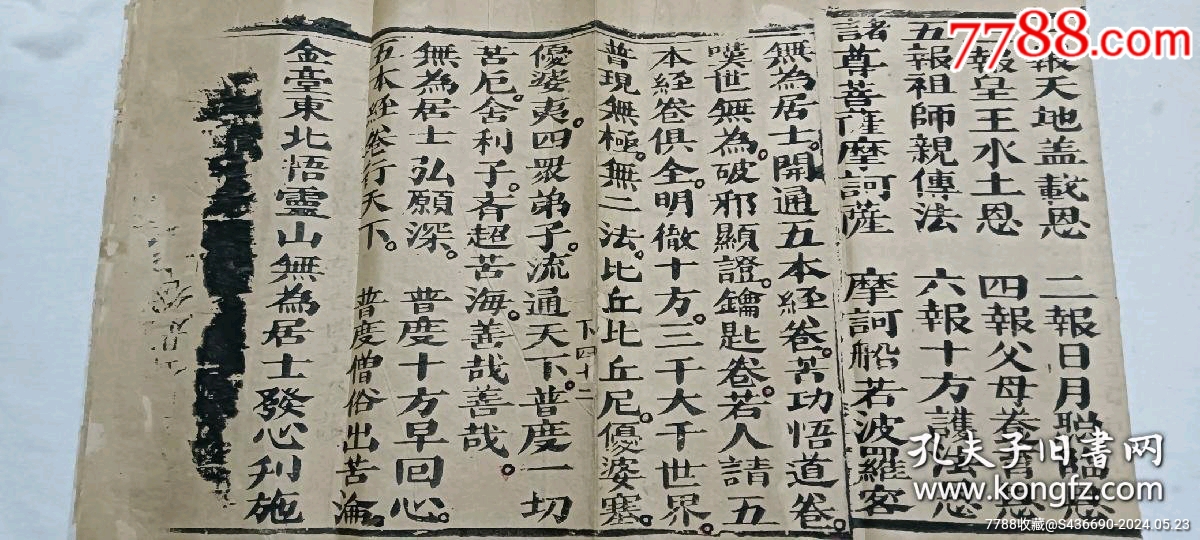 報天地盖載恩 二報日月照臨恩
報皇王水土恩 四報父母养育恩
五報祖師親傳法 六報十方護法恩
諸尊菩薩摩訶薩 摩訶船若波羅密
無為居士。開通五本經卷。苦功悟道卷。
嘆世無為。破邪顯證。鑰匙卷。若人請五
本經卷俱全。明徹十方。三千大千世界。
普現無極。無二法。比丘比丘尼。優婆塞。
優婆夷。四眾弟子。流通天下。普度一切
下四十二
苦厄。舍利子。吝超苦海。善哉善哉。
無為居士弘願深。 普度十方早回心。
五本經卷行天下。 普度僧俗出苦淪。
金臺東北悟靈山無為居士發心刋施
7788.com
孔夫子旧書网
www.kongfz.com
7788收藏@S436690-2024.05.23